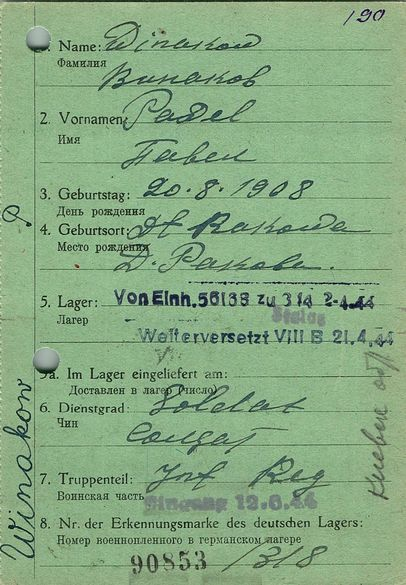 190
1. Name: Winakow
Фамилия
Винаков
2. Vornamen: Pawel
Имя
Павел
3. Geburtstag: 20.8.1908
День рождения
4. Geburtsort: D. Rakowa
Место рождения
Д. Ракова.
5. Lager: Von Einh. 56138 zu 314 2-4.44
Лагер Stalag
Weiterversetzt VIII B 21.4.44
5a. Im Lager eingeliefert am:
Доставлен в лагер (число)
6. Dienstgrad: Soldat
Чин
Солдат
7. Truppenteil: Inf Reg
Воинская часть
Eingang 12.6.44
8. Nr. der Erkennungsmarke des deutschen Lagers:
Номер военнопленного в германском лагере
90853 /318
Winakow
P